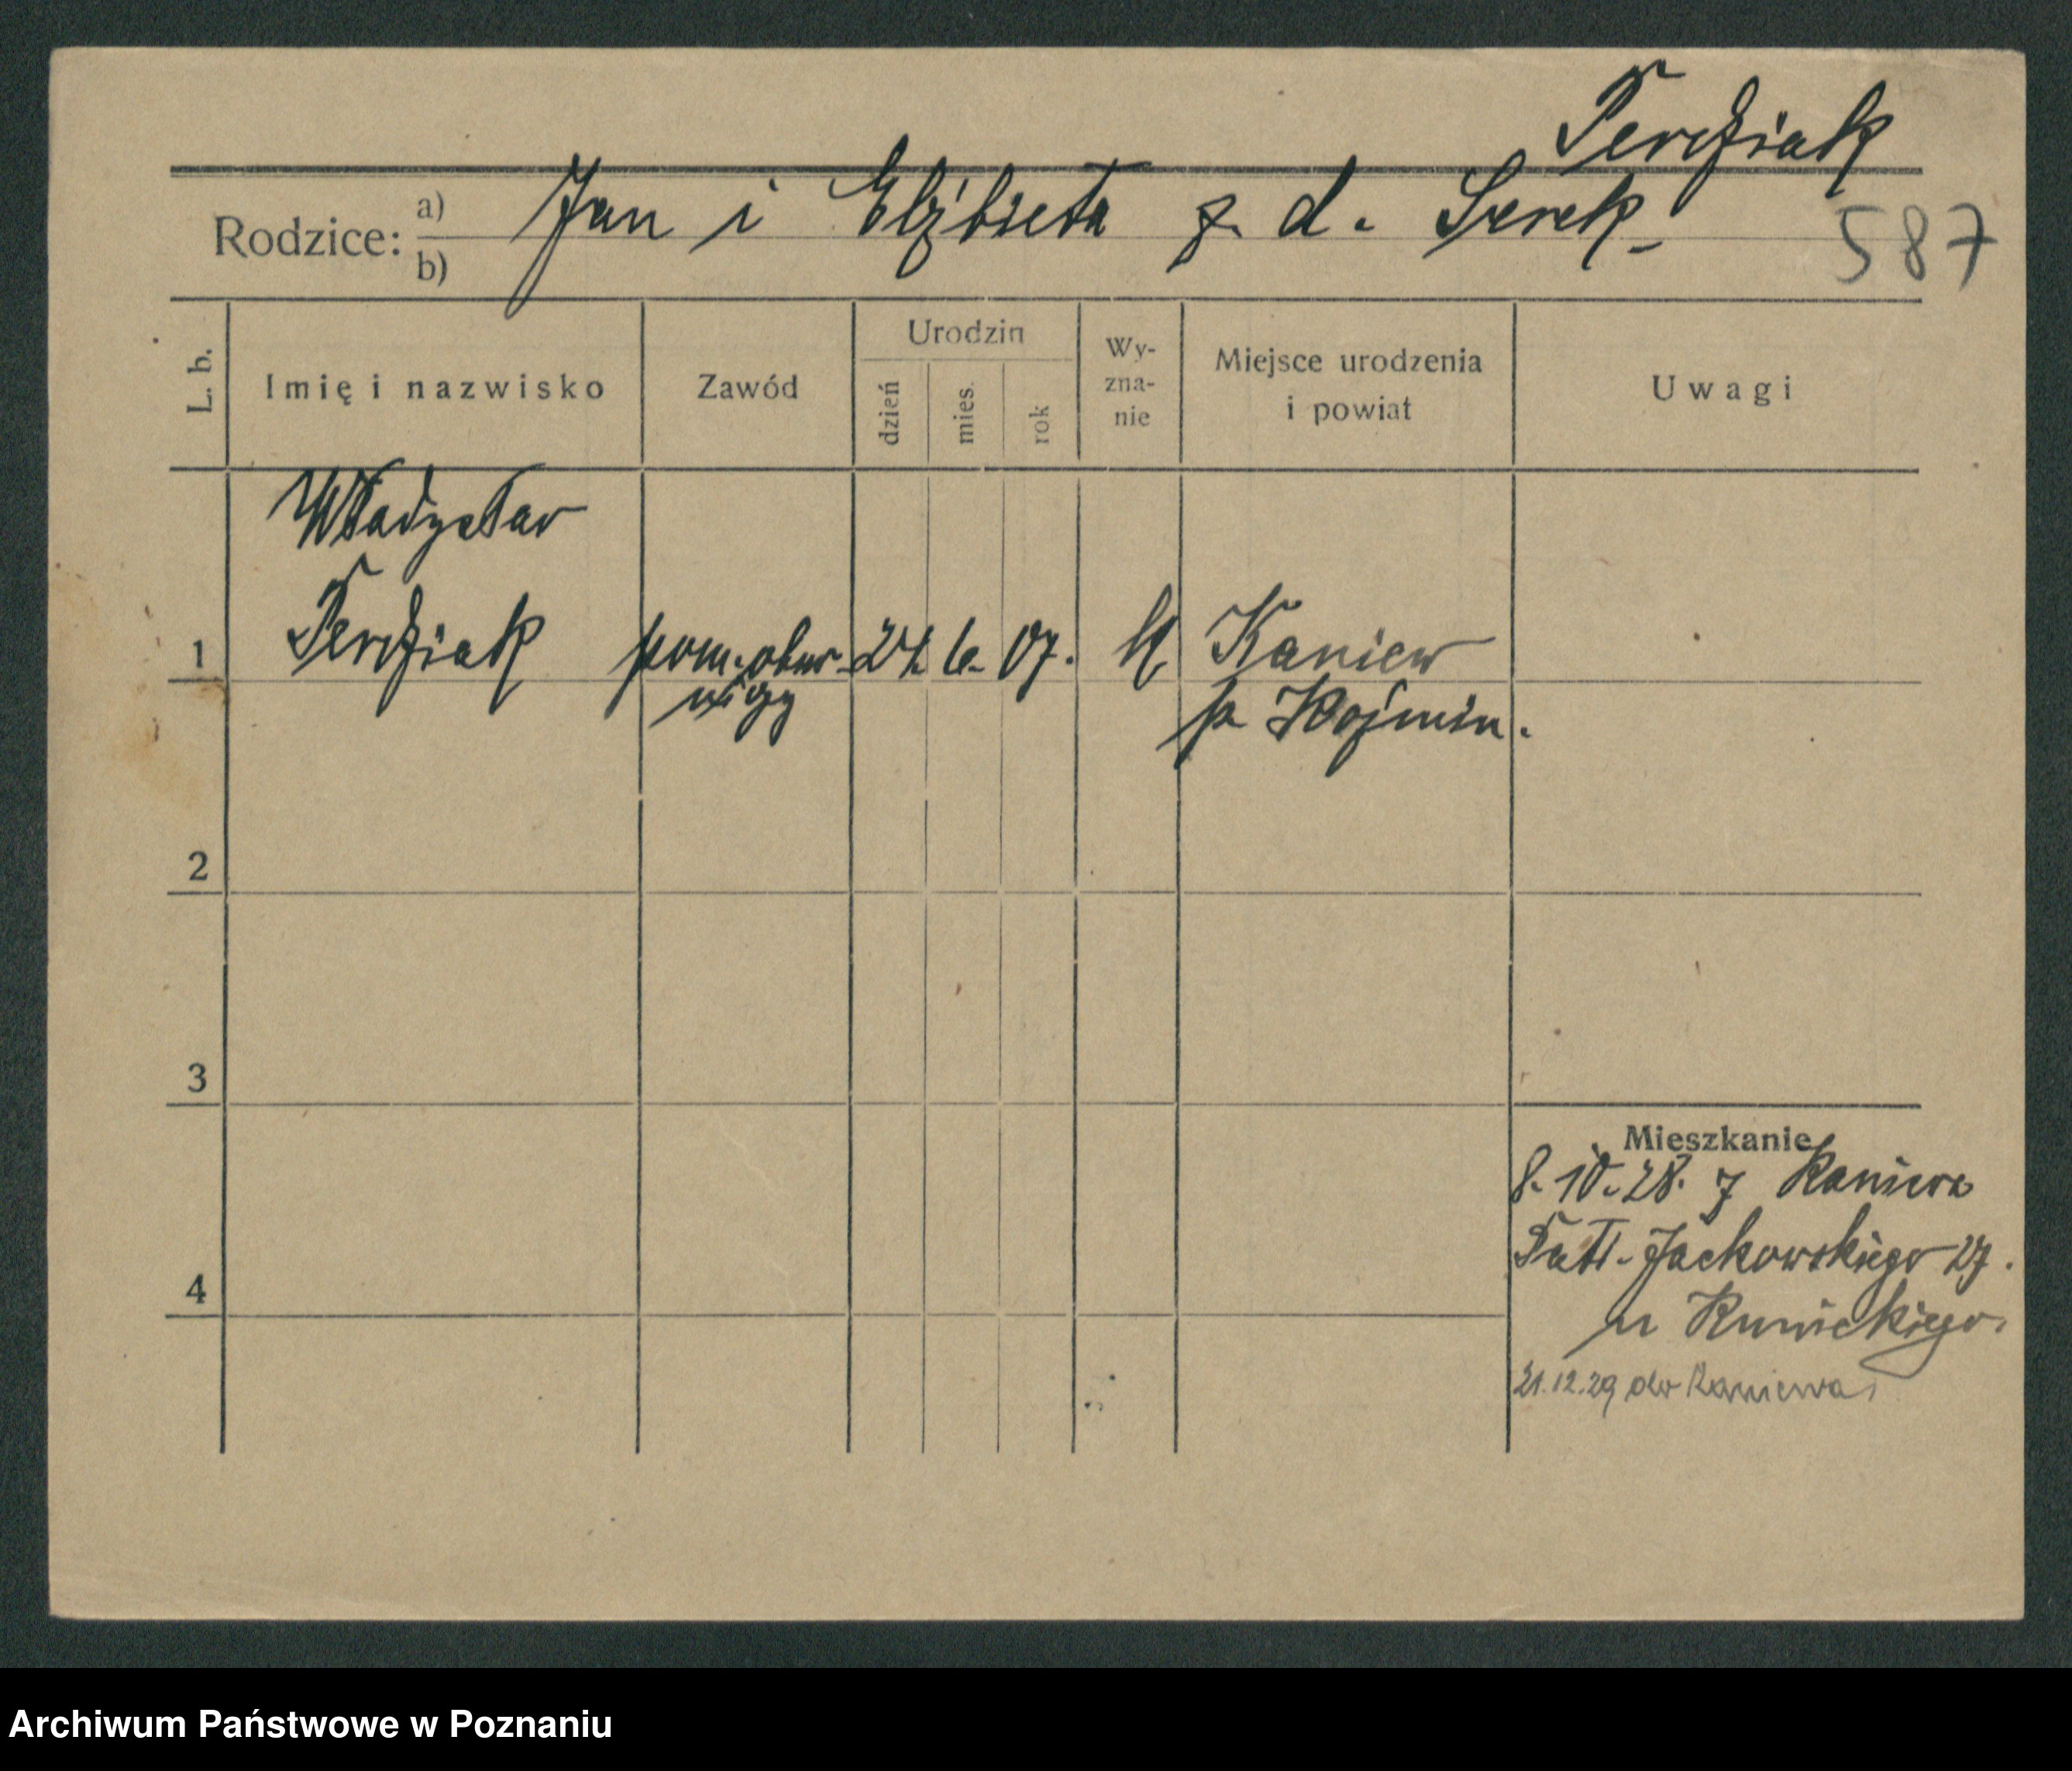 Perdziak
Rodzice: a) b) Jan i Elżbieta z. d. Serek
587
L. b. Imię i nazwisko Zawód Urodzin dzień mies. rok Wy-zna-nie Miejsce urodzenia i powiat Uwagi
Władysław
1 Perdziak pom. 24. 6. 07. Kaniew
p. Koźmin.
2
3
Mieszkanie
8. 10. 28. z Kaniewa
4 Jackowskiego 27.
u Runickiego.
21.12.29 do Kaniewa
Archiwum Państwowe w Poznaniu